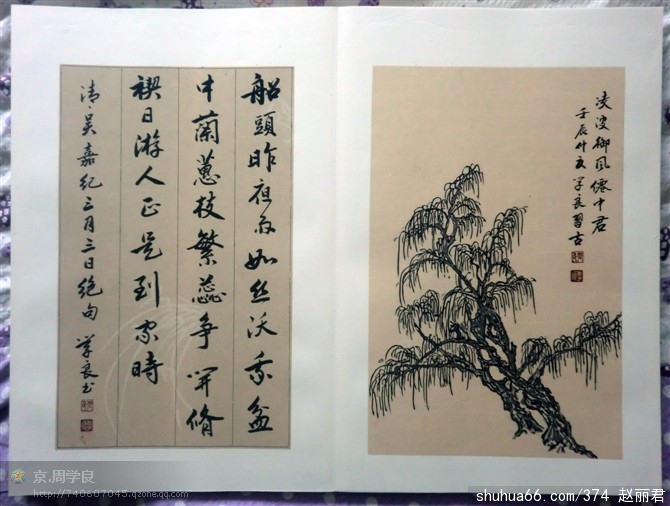 船頭昨夜雨如丝沃我盆
中蘭蕙枝繁蕊争開脩
禊日游人正是到家時
清吴嘉纪三月三日绝句 学良书
凌波御风僊中君
壬辰竹友学良習古
京.周学良
http://740607045.qzone.qq.com
shuhua66.com/374 赵丽君